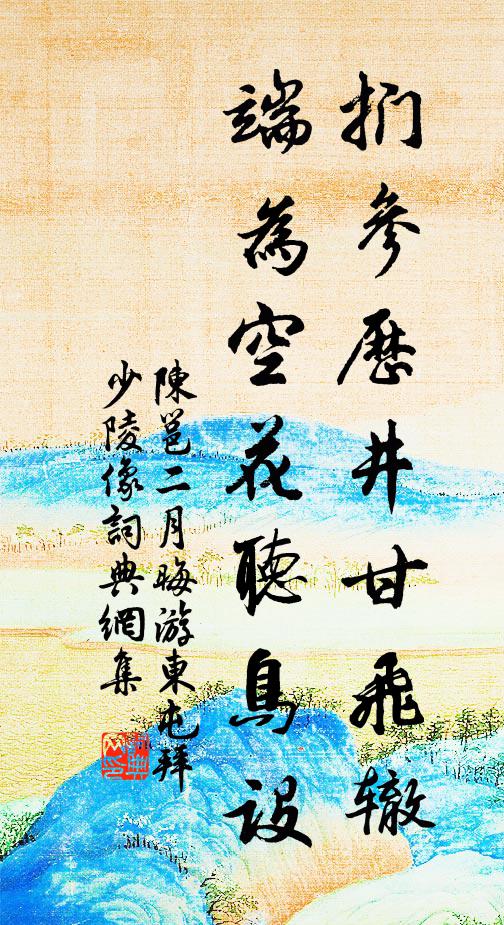 扪参歷井甘飛辙
端為空花聽鳥設
陳邕二月晦游東屯拜
少陵像詞典網集